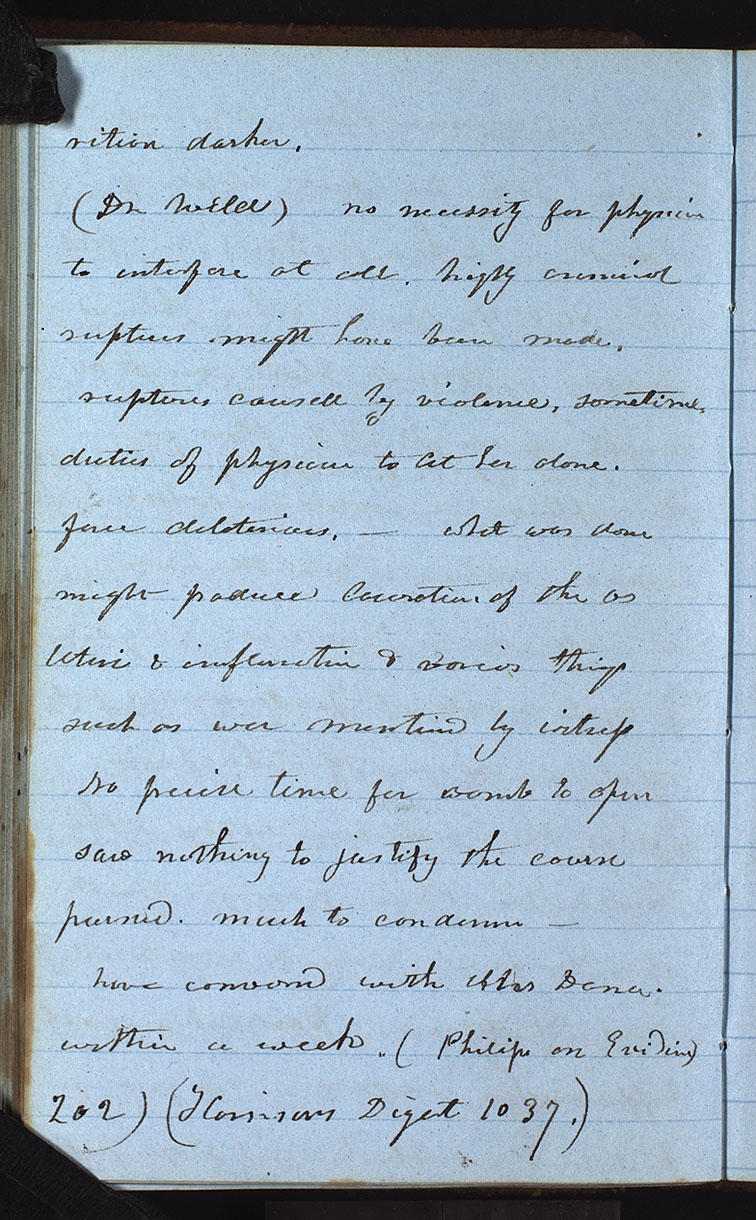 rition darker.
(Dr Wild) no necessity for physician
to interfere at all. highly criminal
ruptures might have been made.
ruptures caused by violence, sometimes
duties of physician to let her alone.
force deleterious. — what was done
might produce laceration of the os
Uteri & inflamation & various things
such as were mentioned by witness
No precise time for womb to open
saw nothing to justify the course
pursued. much to condemn —
have conversed with Mrs Dana.
within a week. (Philips on Evidence
202) (Harrisons Digest 1037.)